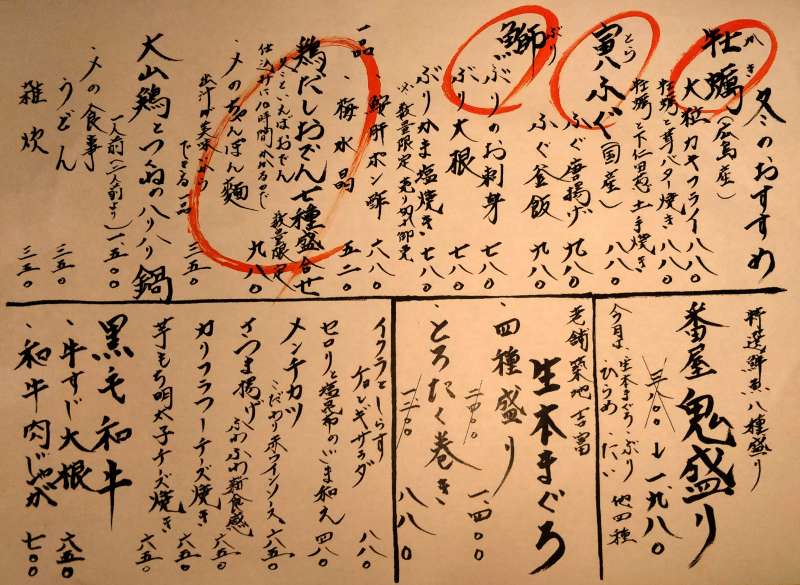 冬のおすすめ
かき
牡蠣（広島産）
大粒カキフライ 八八〇
牡蠣と茸バター焼き 八八〇
牡蠣と下仁田葱土手焼き
とら
寅ふぐ（国産）
ふぐ唐揚げ 九八〇
ふぐ釜飯 九八〇
ぶり
鰤
ぶりのお刺身 七八〇
ぶり大根 七八〇
ぶりかま塩焼き 七八〇
※数量限定 売り切れ御免
一品
、鮟肝ポン酢 六八〇
、梅水晶 五二〇
鶏だしおでん七種盛合せ 九八〇
数量限定
仕込みに10時間かかるので
、〆のちゃんぽん麺 三五〇
出汁が美味いから
できる一品
大山鶏とつくねのハリハリ鍋
一人前（二人前より）一、五〇〇
、〆の食事
うどん 三五〇
雑炊 三五〇
特選鮮魚八種盛り
番屋鬼盛り
三八〇〇→一、九八〇
今月は、生本まぐろ、ぶり
ひらめ、たい 他四種
老舗築地 吉富
生本まぐろ
、四種盛り 二四〇〇 一、四〇〇
、とろたく巻き 一二〇〇 八八〇
イクラとしらす
チョレギサラダ 八八〇
セロリと塩昆布のごま和え 四八〇
メンチカツ
こだわり赤ワインソース 六五〇
さつま揚げ
ふわふわ新食感 六五〇
カリフラワーチーズ焼き 六五〇
芋もち明太子チーズ焼き 六五〇
黒毛和牛
、牛すじ大根 六五〇
、和牛肉じゃが 七〇〇